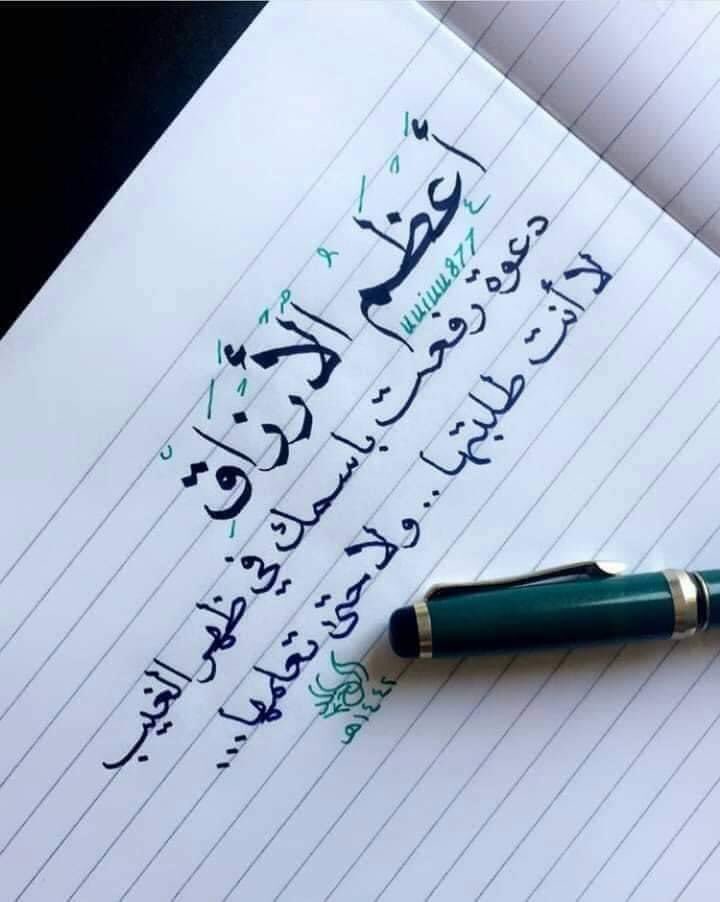 أَعْظَم الْأَرْزَاقِ
uuiuu877
دعوة رفعت باسمك في ظهر الغيب
لا أنت طلبتها .. ولا حتى تعلمها ...
١٤٤٢هـ